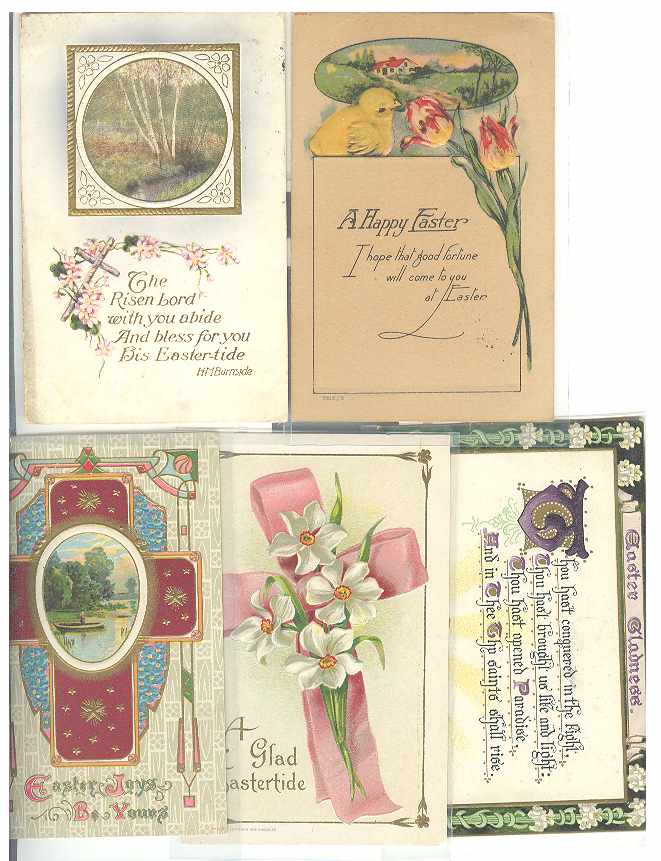 The
Risen Lord
with you abide
And bless for you
His Easter-tide
H.M.Burnside
A Happy Easter
I hope that good fortune
will come to you
at Easter
Easter Joys
Be Yours
A
Glad
astertide
Easter Gladness.
Thou hast conquered in the fight,
Thou hast brought us life and light,
Thou hast opened Paradise,
And in Thee Thy saints shall rise.